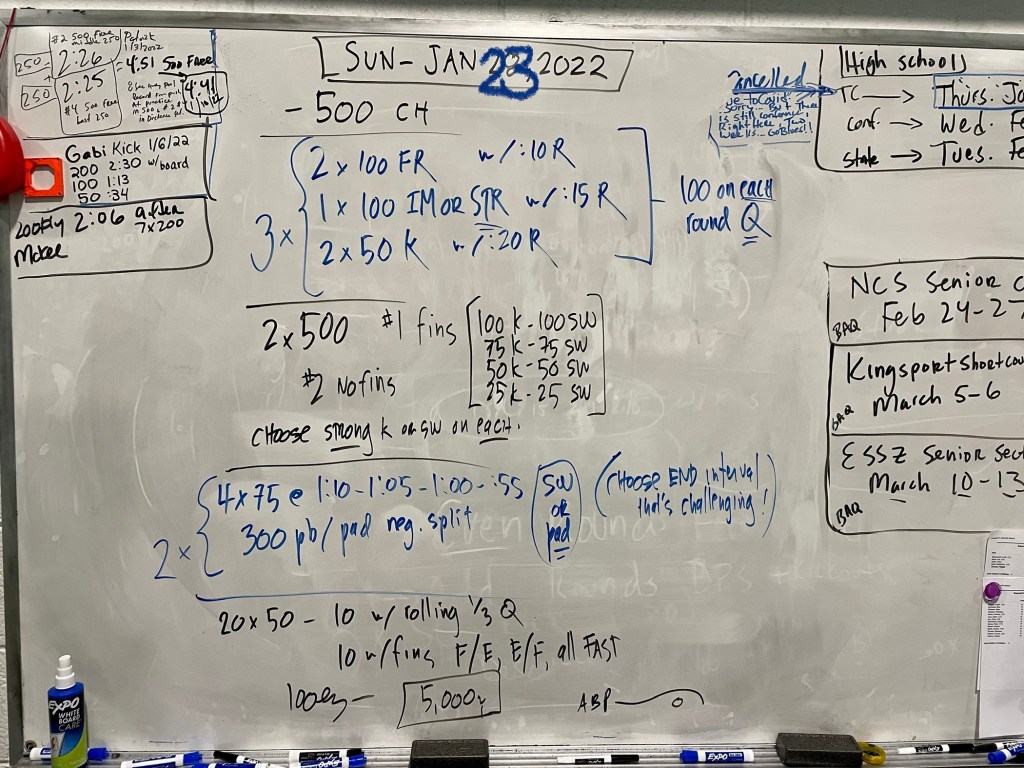 #2 500 Free
middle 250
250 = 2:26
250 2:25
#4 500 Free
Last 250
Patrick
1/3/2022
= 4:51 500 Free
4:41
Gabi Kick 1/6/22
200 2:30 w/board
100 1:13
50 :34
200 Fly 2:06 after
7x200
SUN-JAN 23 2022
- 500 CH
3 x
2 x 100 FR w/ :10 R
1 x 100 IM OR STR w/ :15 R
2 x 50 K w/ :20 R
100 on each
round Q
2 x 500 #1 fins
#2 No fins
100 K - 100 SW
75 K - 75 SW
50 K - 50 SW
25 K - 25 SW
CHOOSE strong K or SW on each.
2 x
4 x 75 @ 1:10 - 1:05 - 1:00 - :55
300 pb/pad neg. split
SW
OR
pad
(CHOOSE END interval
that's challenging!)
20 x 50 - 10 w/ rolling 1/3 Q
10 w/fins F/E, E/F, all FAST
100 ez - 5,000y
ABP
Cancelled
due to Covid.
Sorry... But there
is still conference
Right Here, Two
Weeks... Go Blues!!
High schools
TC → Thurs. Ja
Conf. → Wed. Fe
State → Tues. Fe
NCS Senior C
BAQ Feb 24-27
Kingsport shortcou
BAQ March 5-6
ESSZ Senior Sect
March 10-13
BAQ
EXPO
WHITE
BOARD
CARE
EXPO